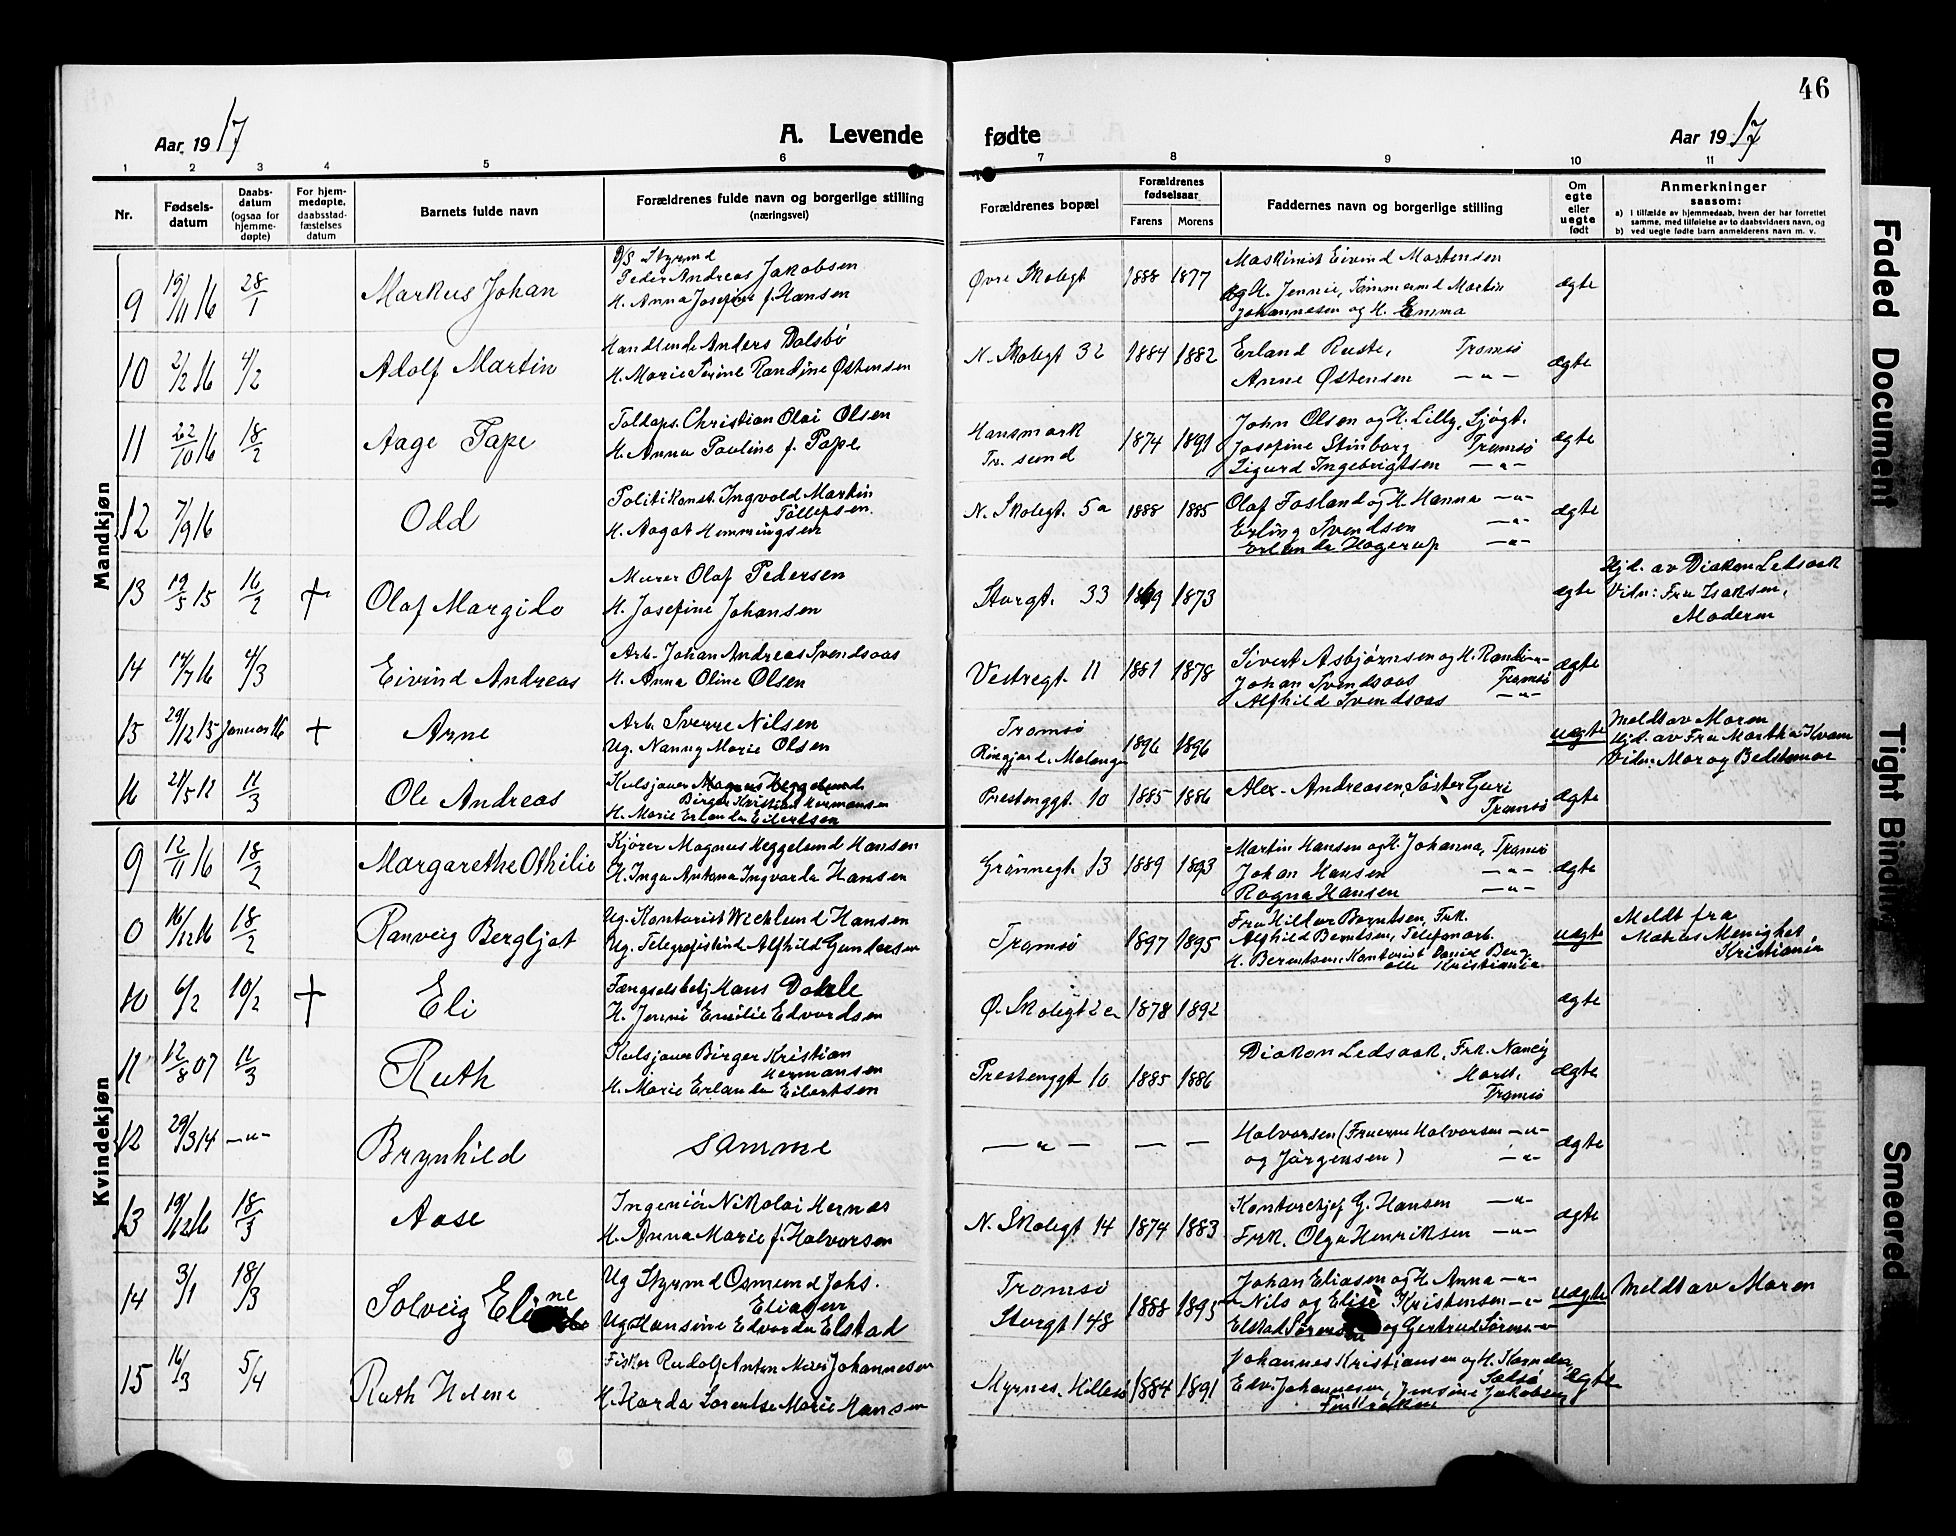 46
Aar 1917
A. Levende
fødte
Aar 1917
1 2 3 4 5 6 7 8 9 10 11
Nr.
Fødsels-
datum
Daabs-
datum
(ogsaa for
hjemme-
døpte)
For hjem-
medøpte,
daabsstad-
fæstelses
datum
Barnets fulde navn
Forældrenes fulde navn og borgerlige stilling
(næringsvei)
Forældrenes bopæl
Forældrenes
fødselsaar
Farens Morens
Faddernes navn og borgerlige stilling
Om
egte
eller
uegte
født
Anmerkninger
saasom:
a) I tilfælde av hjemmedaab, hvem der har forrettet
samme, med tilføielse av to daabsvidners navn, og
b) ved uegte fødte barn anmelderens navn m. v.
Mandkjøn
9 19/11 16 28/1 Markus Johan
Styrmd
Peder Andreas Jakobsen
H. Anna Josefine f. Hansen
Øvre Skolegt 1888 1877
Maskinist Eivind Mortensen
og H. Jennie, Tømmermd Martin
Johannesen og H. Emma
ægte
10 2/2 16 4/2 Adolf Martin
Handlende Anders Dalsbø
H. Marie Serine Randine Østensen
N. Skolegt 32 1884 1882
Erland Ruste, Tromsø
Anne Østensen —„—
ægte
11 22/10 16 18/2 Aage Pape
Toldops. Christian Olai Olsen
H. Anna Pauline f. Pape
Hansmark
Tr. sund
1874 1891
John Olsen og H. Lilly, Sjøgt.
Josefine Stinborg Tromsø
Sigurd Ingebrigtsen —„—
ægte
12 7/9 16 Odd
Politikonst. Ingvold Martin
Tollefsen.
H. Aagot Hemmingsen
N. Skolegt. 5a 1888 1885
Olaf Fosland og H. Hanna —„—
Erling Svendsen —„—
Erlanda Hagerup —„—
ægte
13 19/5 15 16/2 † Olaf Margido
Murer Olaf Pedersen
H. Josefine Johansen
Storgt. 33 1873
ægte
Hjd. av Diakon Ledsaak
Vidn: Fru Isaksen,
Moderen
14 14/7 16 4/3 Eivind Andreas
Arb. Johan Andreas Svendsaas
H. Anna Oline Olsen
Vestregt. 11 1881 1878
Sivert Asbjørnsen og H. Randi —„—
Johan Svendsaas Tromsø
Alfhild Svendsaas —„—
ægte
15 29/12 15 Januar 16 † Arne
Arb. Sverre Nilsen
Ug. Nanny Marie Olsen
Tromsø
Malangen
1896 1896
uægte
Meldt av Moren
Hjd. av Fru Martha Kvam
Vidn: Mor og Bedstemor
16 21/5 12 11/3 Ole Andreas
Kulsjauer
Birger Kristian Hermansen
H. Marie Erlanda Eilertsen
Prestenggt. 10 1885 1886
Alex. Andreasen, Søster Guri
Tromsø
ægte
Kvindekjøn
9 12/11 16 18/2 Margarethe Othilie
Kjører Magnus Heggelund Hansen
H. Inga Antona Ingvarda Hansen
Grønnegt. 13 1889 1893
Martin Hansen og H. Johanna, Tromsø
Johan Hansen —„—
Ragna Hansen —„—
ægte
0 16/12 16 18/2 Ranveig Bergljot
Ug. Kontorist Wicklund Hansen
Ug. Telegrafistinde Alfhild Gundersen
Tromsø 1897 1895
Fru Hildur Berntsen, Frk.
Alfhild Berntsen, Telefonarb.
H. Berentsen, Kontorist Daniel Berg,
alle Kristiania
uægte
Meldt fra
Matæus Menighet
Kristiania
10 6/2 10/2 † Eli
Fængselsbetj. Hans Dahle
H. Jenni Emilie Edvardsen
Ø. Skolegt 2a 1878 1892
ægte
11 12/8 07 11/3 Ruth
Kulsjauer Birger Kristian
Hermansen
H. Marie Erlanda Eilertsen
Prestenggt 10 1885 1886
Diakon Ledsaak, Frk. Nancy
Tromsø
ægte
12 29/3 14 —„— Brynhild
samme
—„— — —
Halvorsen (Fruerne Halvorsen —„—
og Jørgensen) —„—
ægte
13 19/12 16 18/3 Aase
Ingeniør Nikolai Hernæs
H. Anna Marie f. Halvorsen
N. Skolegt 14 1874 1883
Kontorchef G. Hansen —„—
Frk. Olga Henriksen —„—
ægte
14 3/1 18/3 Solveig Eline
Ug Styrmd Osmund Johs.
Eliasen
Ug Hansine Edvarda Elstad
Tromsø
Storgt 148
1888 1895
Johan Eliasen og H. Anna —„—
Nils og Elise Kristensen —„—
Elstad Sørensen og Gertrud Sørens. —„—
uægte
Meldt av Moren
15 16/3 5/4 Ruth Helene
Fisker Rudolf Anton Meyer Johannesen
H. Karda Lorentse Marie Hansen
Myrnes, Hillesø 1884 1891
Johannes Kristiansen og H. Kornelia,
Edv. Johannesen, Jensine Jakobsen,
Finkroken
ægte
Faded Document
Tight Binding
Smeared